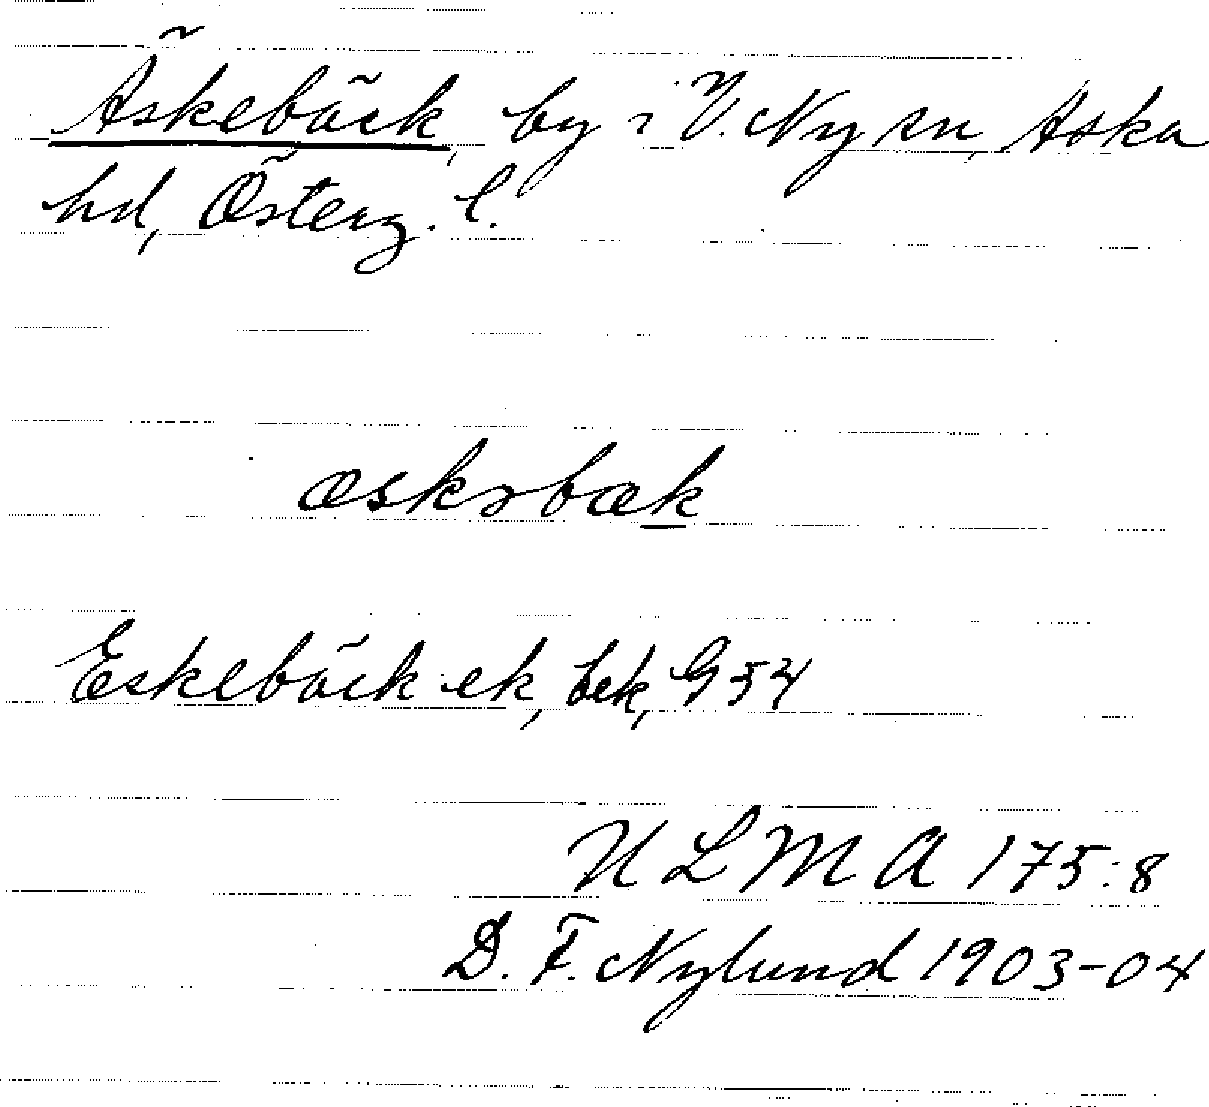 Äskebäck, by i V. Ny sn, Aska
hd, Österg. l.
æskəbæk
Eskebäck ek, bek, G 54
ULMA 175:8
D. F. Nylund 1903-04